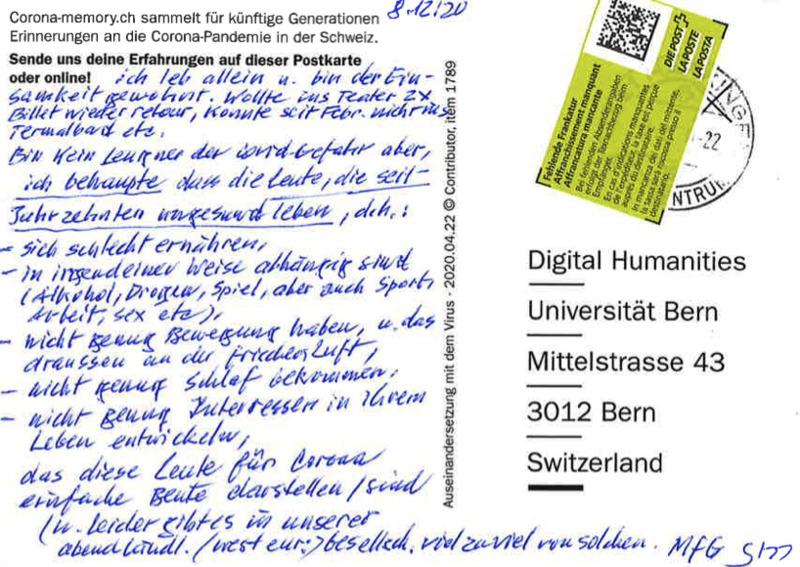 Corona-memory.ch sammelt für künftige Generationen
Erinnerungen an die Corona-Pandemie in der Schweiz.
8.12/20
Sende uns deine Erfahrungen auf dieser Postkarte
oder online!
ich leb allein u. bin der Ein-
samkeit gewohnt. Wollte ins Teater 2x
Billet wieder retour, konnte seit Febr. nicht ins
Termalbad etc.
Bin kein Leugner der covid-Gefahr aber,
ich behaupte dass die Leute, die seit
Jahrzehnten ungesund leben, d.h.:
- sich schlecht ernähren,
- in irgendeiner Weise abhängig sind
(Alkohol, Drogen, Spiel, aber auch Sport,
Arbeit, sex etc),
- nicht genug Bewegung haben, u. das
draussen an der frischen Luft,
- nicht genug Schlaf bekommen,
- nicht genug Interressen in ihrem
Leben entwickeln,
das diese Leute für Corona
einfache Beute darstellen/sind
(u. leider gibt es in unserer
abendländl. (west eur:) Gesellsch. viel zu viel von solchen. MfG
Auseinandersetzung mit dem Virus - 2020.04.22 © Contributor, item 1789
DIE POST
LA POSTE
LA POSTA
Fehlende Frankatur
Affranchissement manquant
Affrancatura mancante
Bei fehlenden Absenderangaben
erfolgt der Taxnachbezug beim
Empfänger.
En cas d'indications manquantes
de l'expéditeur, la taxe est perçue
auprès du destinataire.
In mancanza dei dati del mittente,
la tassa sarà riscossa presso il
destinatario.
-22
NTRUM
Digital Humanities
Universität Bern
Mittelstrasse 43
3012 Bern
Switzerland